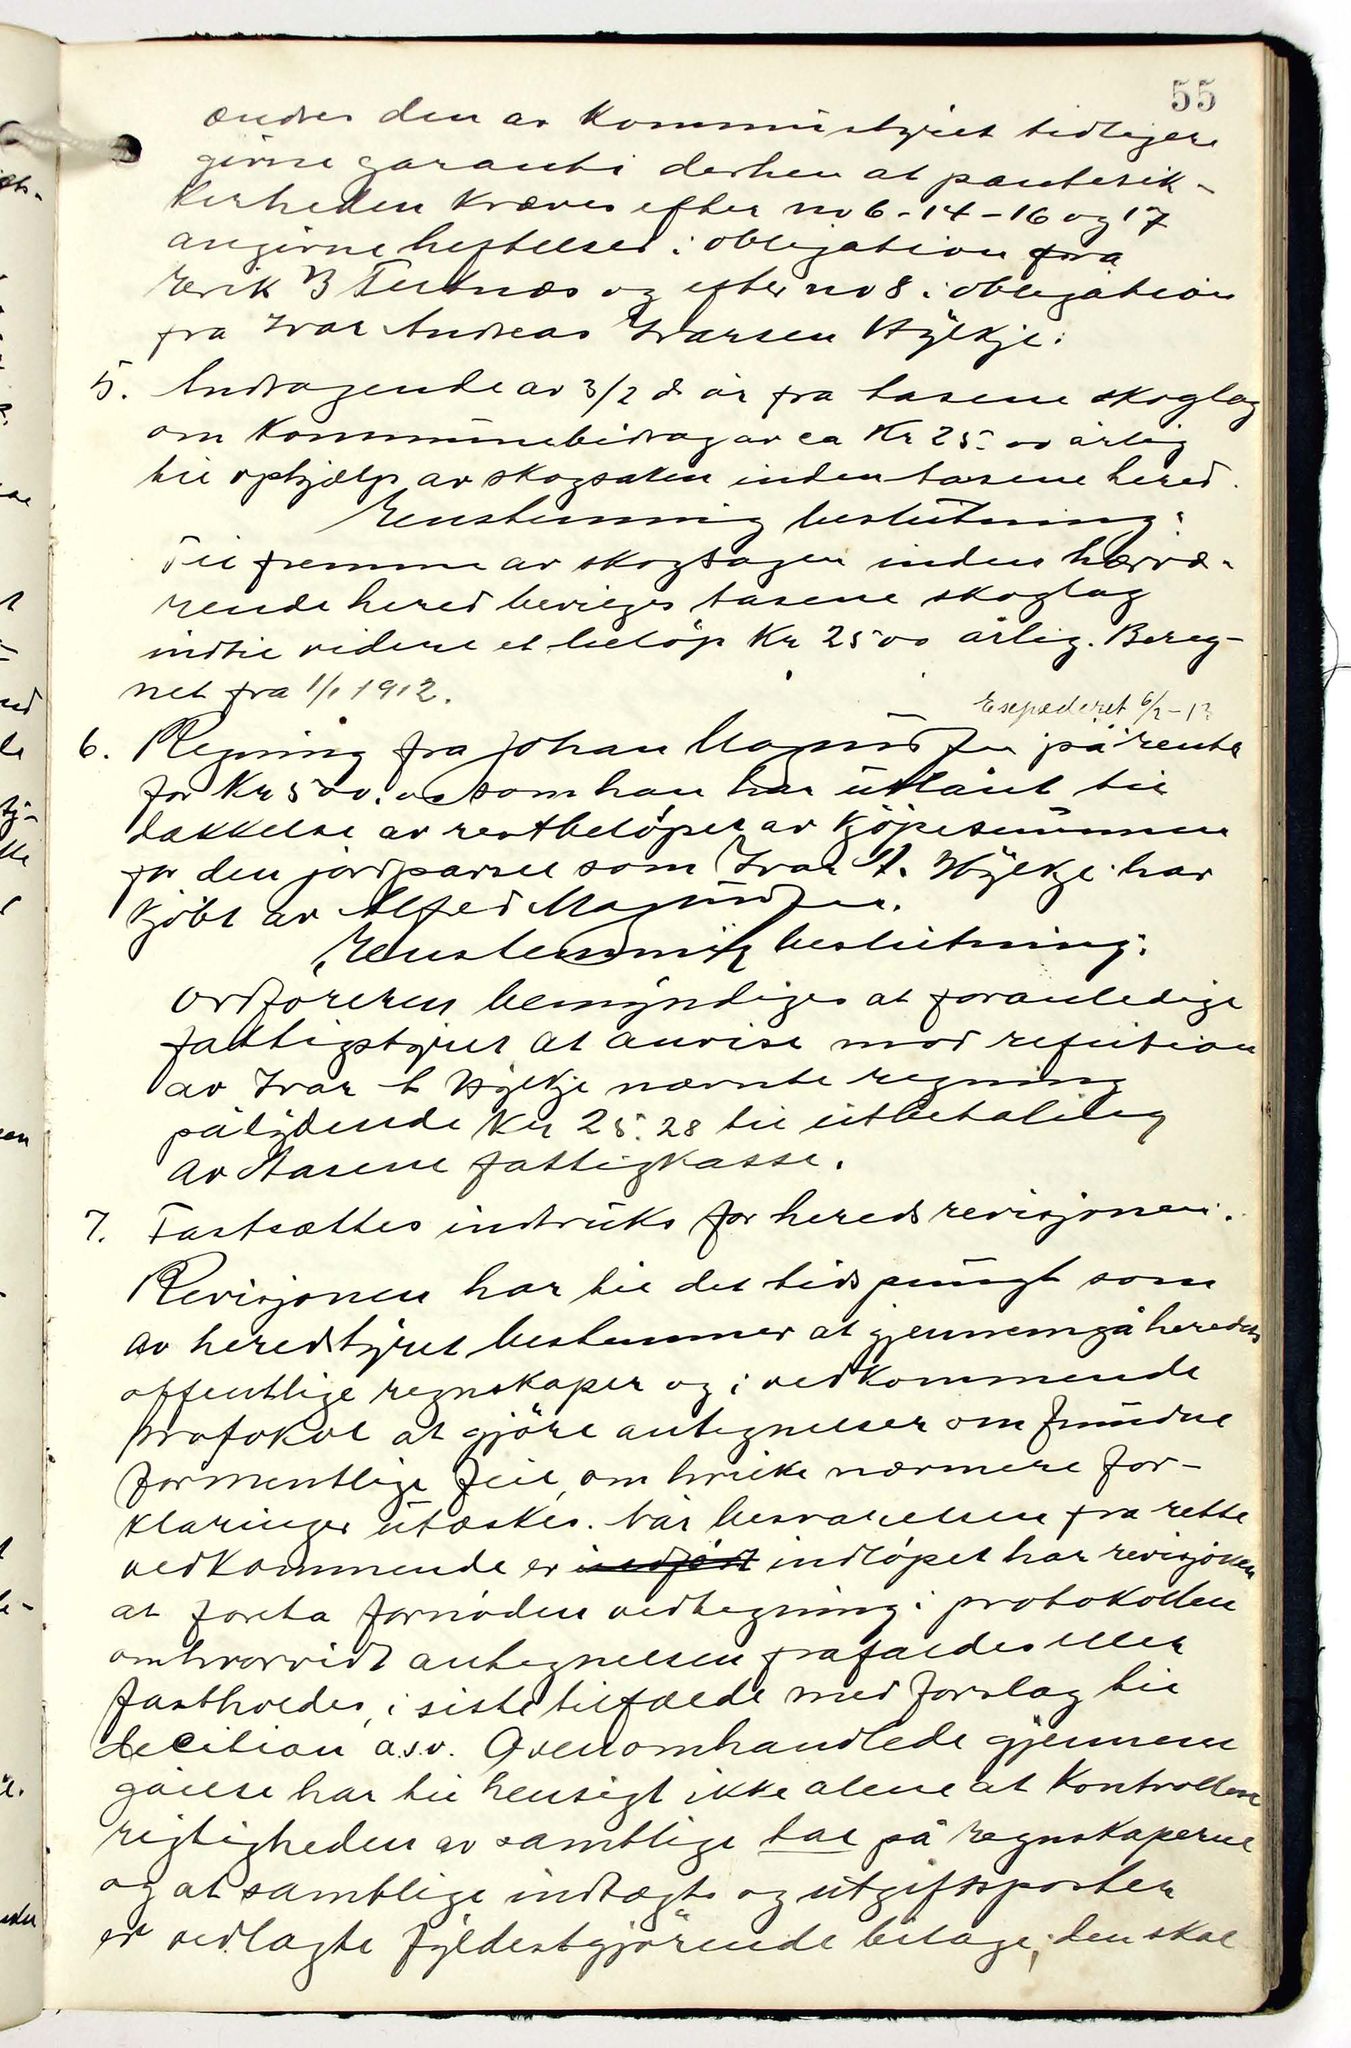 55
ændres den av Kommunstyret tidligere
givne garanti derhen at pantesik-
kerheden kræves efter no 6-14-16 og 17
angivne heftelser i obligation fra
Erik B Tertnæs og efter no 8 i obligation
fra Ivar Andreas Ivarsen Hÿlkje.
5. Andragende av 3/2 d. år fra Aasene skoglag
om Kommunebidrag av ca Kr 25.00 årlig
til ophjælp av skogsaken inden Aasene hered.
Enstemmig beslutning:
Til fremme av skogsagen inden hærvæ-
rende hered bevieges Aasene skoglag
indtil videre et beløp Kr 25 00 årlig. Bereg-
net fra 1/1 1912.
Expederet 6/2-13
6. Regning fra Johan Magnussen på rente
for Kr 500.00 som han har utlånt til
dækkelse av restbeløpet av kjøpesummen
for den jordparsel som Ivar A. Hÿlkje har
kjøbt av Alfred Magnussen.
Enstemmig beslutning:
Ordføreren bemÿndiges at foranledige
fattigstyret at anvise mod refution
av Ivar A Hÿlkje nævnte regning
pålÿdende Kr 25.28 til utbetaling
av Aasene fattigkasse.
7. Fastsættes indtruks for heredsrevisjonen.
Revisjonen har til det tidspungt som
av heredstyret bestemmes at gjennemgå heredets
offentlige regnskaper og i vedkommende
protokol at gjøre antegnelser om fundne
formentlige feil, om hvilke nærmere for-
klaringer utæskes. Når besvarelsen fra rette
vedkommende er indløpet har revisjonen
at foreta fornøden vedtegning i protokollen
omhvorvidt antegnelsen frafaldes eller
fastholdes, i siste tilfælde med forslag til
decition a.s.v. Ovenomhandlede gjennem
gåelse har til hensigt ikke alene at Kontrollere
rigtigheden av samtlige tal på regnskaperne
og at samtlige indtægts og utgiftsposter
er vedlagte fÿldestgjørende bilage; den skal